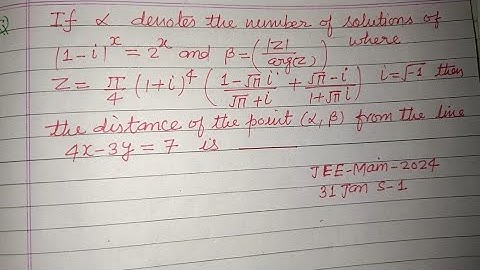 i) If α denotes the number of solutions of
|1-i|^x = 2^x and β = (|Z|/arg(Z)) where
Z = π/4 (1+i)^4 ( (1-√π i)/(√π+i) + (√π-i)/(1+√π i) ) i=√-1 then
the distance of the point (α, β) from the line
4x-3y=7 is ______
JEE-Main-2024
31 Jan S-1